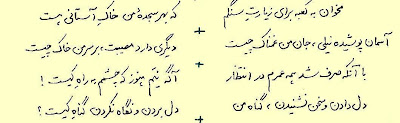 مخوان به کعبه برای زیارتِ سنگم
که بهر سجدهٔ من خاکِ آستانی هست
آسمان پوشیده نیلی، جانِ من غمناک چیست
دیگری دارد مصیبت، بر سرِ من خاک چیست
با آنکه صرف شد همه عمرم در انتظار
آگه نیَم هنوز که چشمم به راهِ کیست!
دل دادن و سخن نشنیدن، گناهِ من
دل بردن و نگاه نکردن گناهِ کیست؟